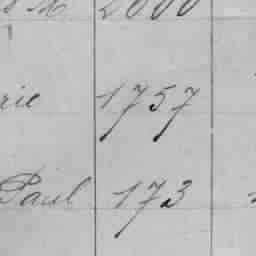 2000
rie 1757
Paul 173